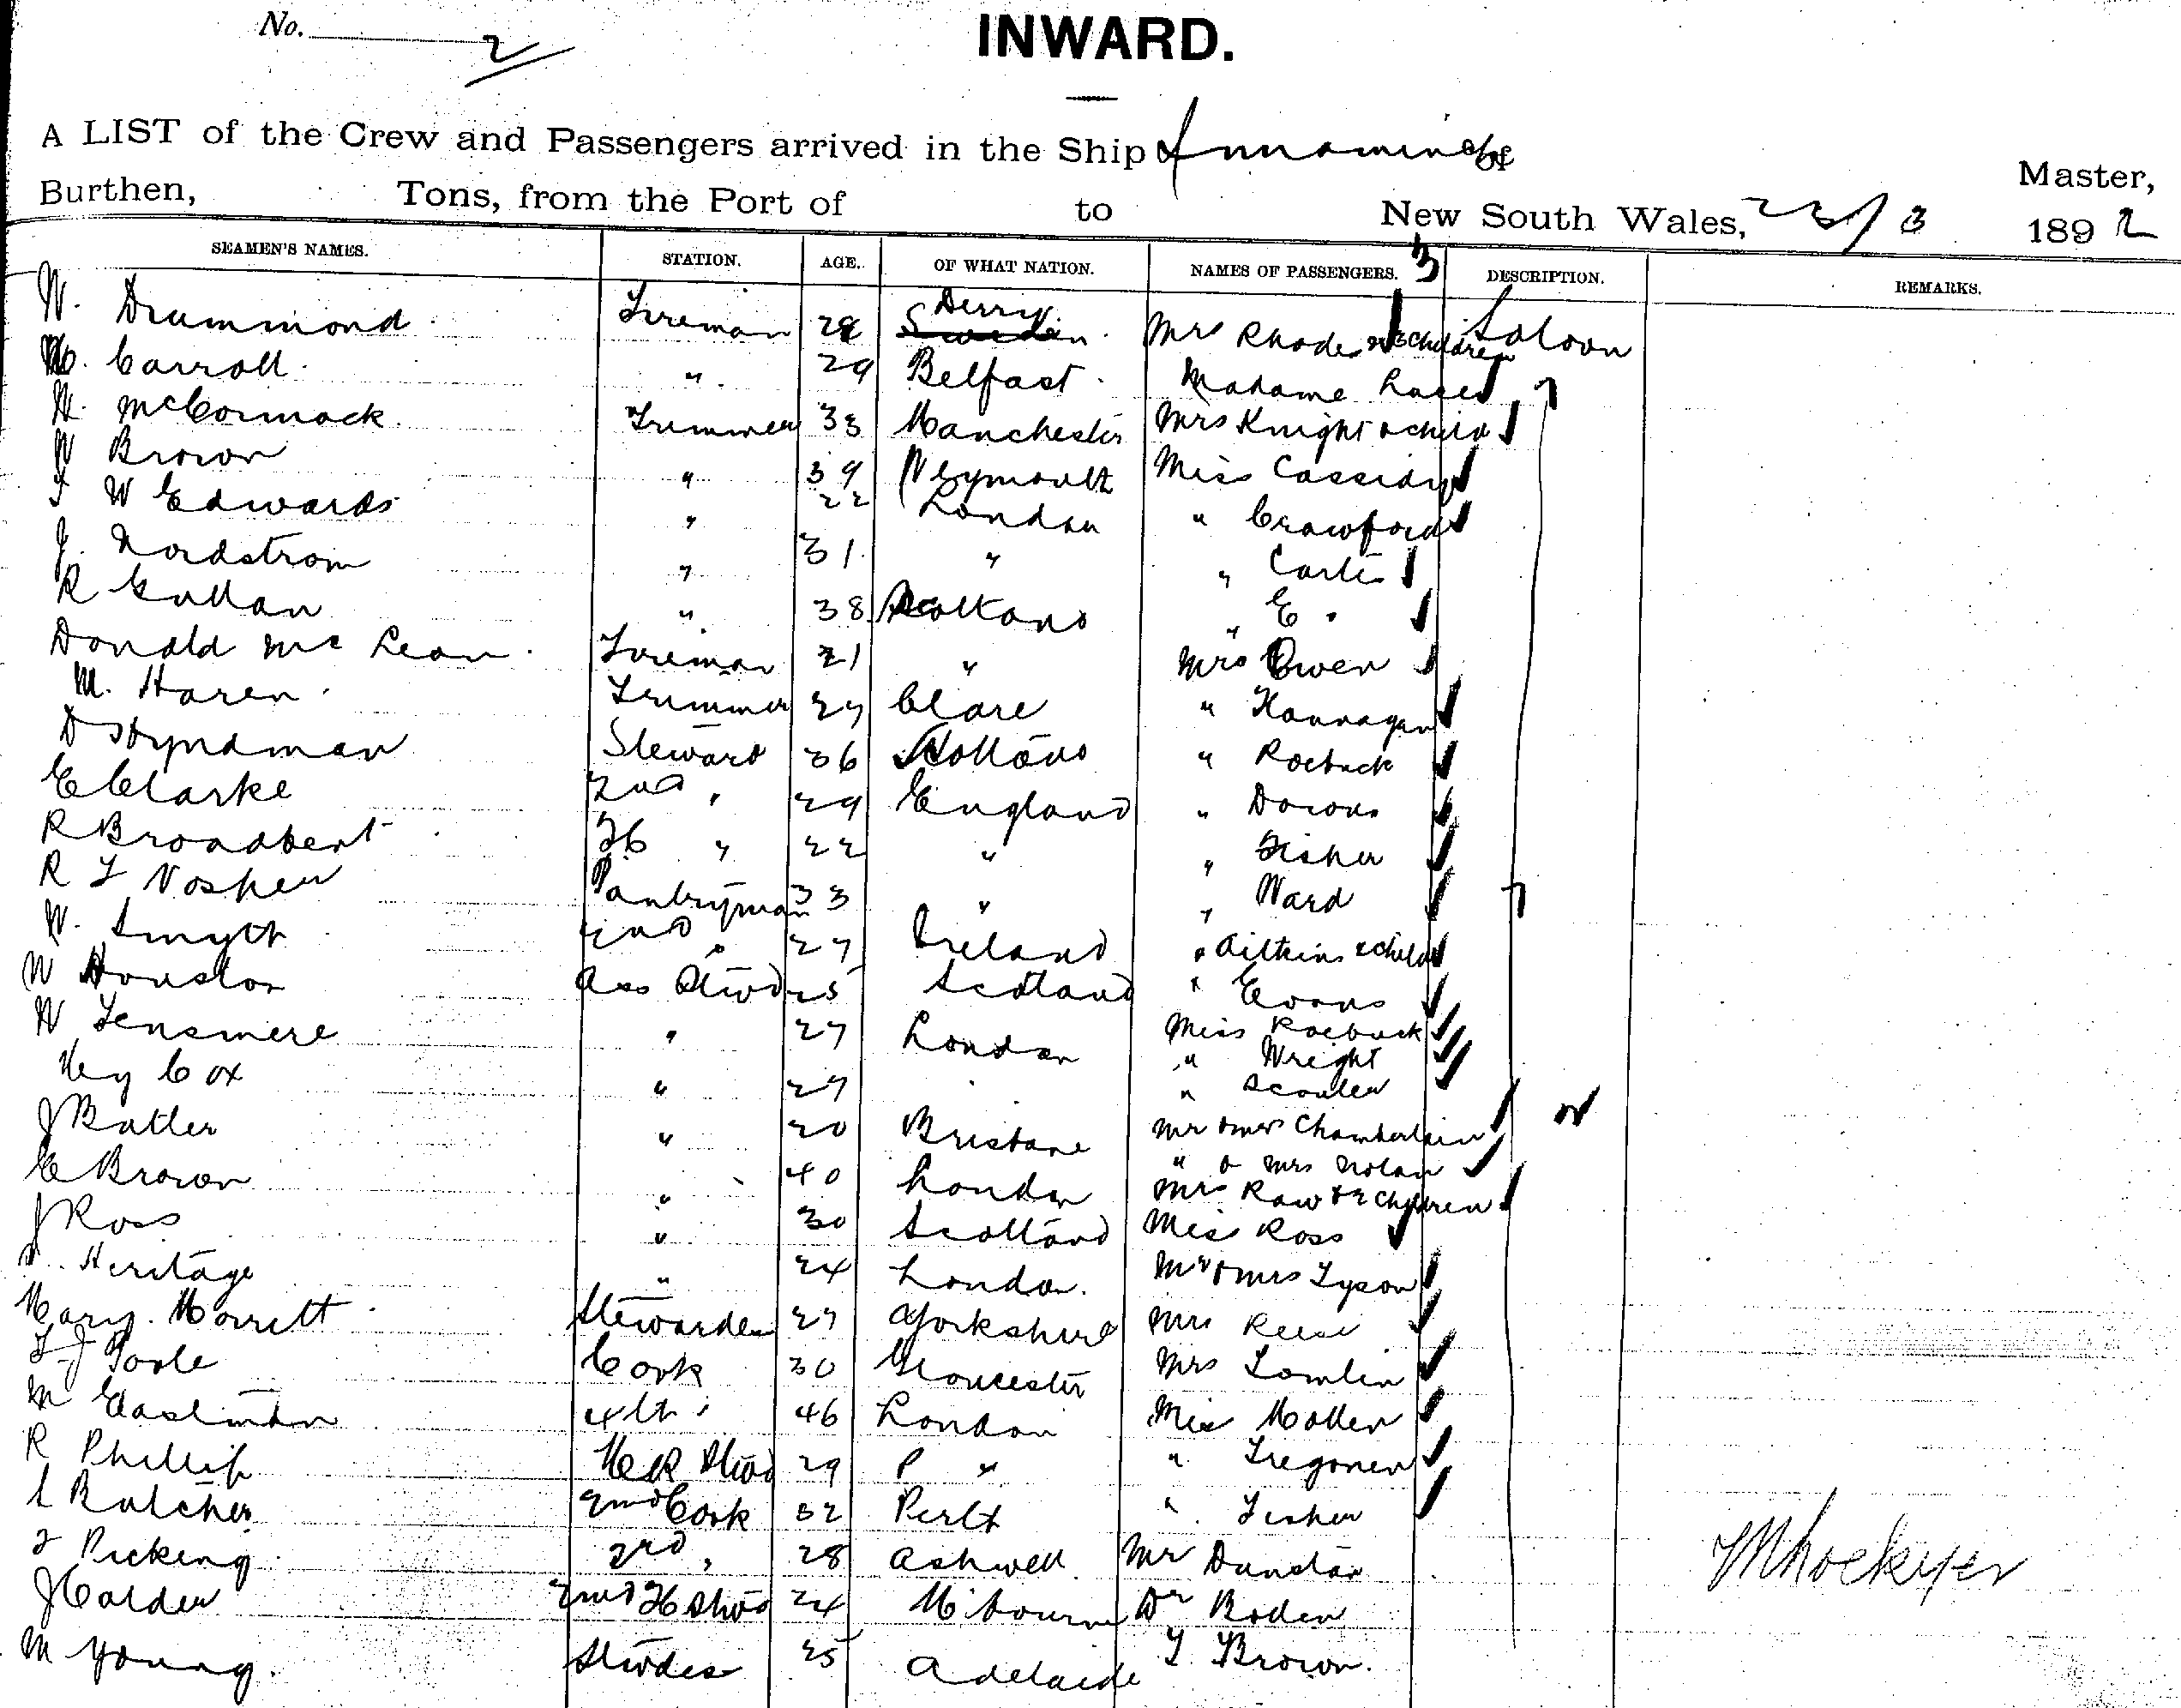 No. 2
INWARD.
A LIST of the Crew and Passengers arrived in the Ship Innamincka of
Burthen, Tons, from the Port of to New South Wales, 23/3 1892 Master,
SEAMEN'S NAMES. STATION. AGE. OF WHAT NATION. NAMES OF PASSENGERS. 3 DESCRIPTION. REMARKS.
W. Drummond Fireman 28 Derry Mrs Rhodes & 3 children Saloon
Carroll " 29 Belfast Madame
H. McCormack Trimmer 33 Manchester Mrs Knight & child
W Brown " 39 Weymouth Miss Cassidy
F W Edwards " 22 London " Crawford
J. Nordstrom " 31 " " Carter
R Gullan " 38 Scotland " E "
Donald McLean Fireman 21 " Mrs Owen
M. Haren Trimmer 27 Clare " Hannagan
D Hyndman Steward 36 Scotland " Roebuck
E Clarke 2nd " 29 England " Downs
R Broadbent FC " 22 " " Fisher
R F Vosper Pantryman 33 " " Ward
W. Smyth 2nd " 27 Ireland " Aitkins & child
W Houston Ass Stwd 25 Scotland " Evans
W Tensmere " 27 London Miss Roebuck
" Wright
Hy Cox " 27 " Scouler
J Butler " 20 Brisbane Mr & Mrs Chamberlain
" & Mrs Nolan
E Brown " 40 London Mrs Raw & 2 Children
J Ross " 30 Scotland Miss Ross
Heritage " 24 London. Mr & Mrs Tyson
Mary. Morrett Stewardess 27 Yorkshire Mrs Reese
F J Poole Cook 30 Gloucester Mrs Tomlin
M Eastman 4th " 46 London Miss Moller
R Phillip Stwd 29 " " Tregonen
Butcher 2nd Cook 32 Perth " Fisher
F Picking 3rd " 28 Ashwell Mr Dunstan
J Calder 2nd Stwd 24 M'bourne Dr Boden
M Young. Stwdes 25 Adelaide T Brown.